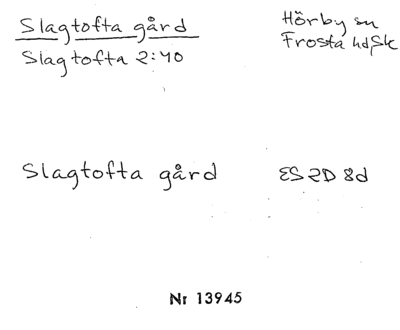 Slagtofta gård
Slagtofta 2:40
Hörby sn
Frosta hd, Sk
Slagtofta gård
ES 2D 8d
Nr 13945